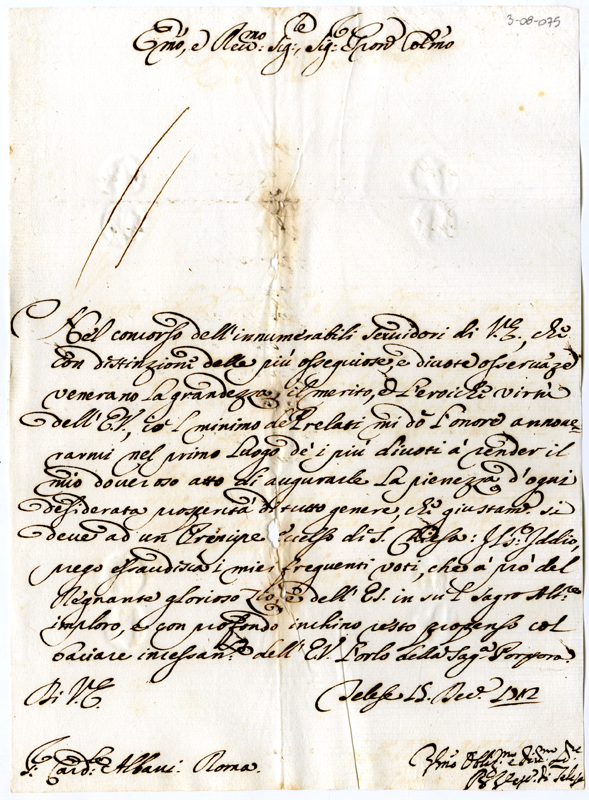 3-08-075
Em̃o, e Reu.mo Sig.r, Sig.r e Pron Col.mo
Nel concorso dell'innumerabili Seruidori di V.E., che
con distinzione delle più ossequiose, e diuote osseruaze
venerano la grandezza, il merito, e l'eroiche virtù
dell'E.V., io'l minimo de Prelati mi dò l'onore annoue-
rarmi nel primo luogo de i più diuoti à render il
mio doueroso atto di augurarle la pienezza d'ogni
desiderata prosperità di tutto genere, che giustam.e si
deue ad un Prencipe Eccelso di S. Chiesa: Iddio,
prego esaudisca i miei frequenti voti, che a prò del
Regnante glorioso Zio, e dell'E.S. in su'l sagro Alt.re
imploro, e con profondo inchino resto propenso col
baciare incessan.e dell'E.V. l'orlo della Sag.a Porpora.
Di V.E.
Telese 15. Dec. 1712
S.r Card. Albani. Roma.
di Telese